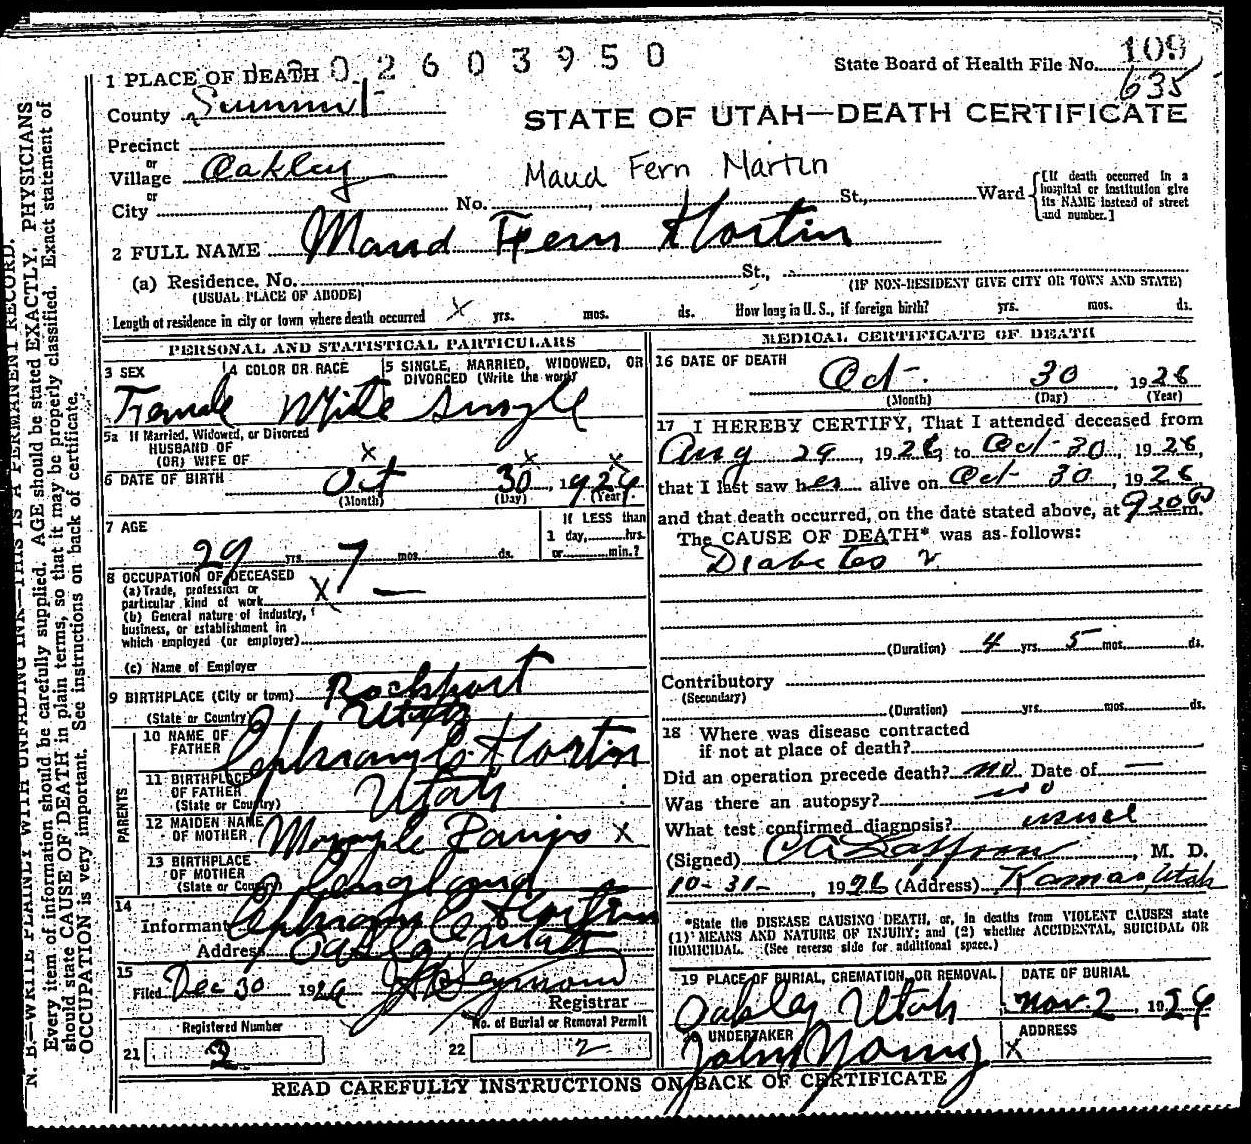 02603950
State Board of Health File No. 109
635
1 PLACE OF DEATH
County Summit
STATE OF UTAH—DEATH CERTIFICATE
Precinct
or
Village Oakley
Maud Fern Martin
or
City No. , St., Ward
[If death occurred in a hospital or institution give its NAME instead of street and number.]
2 FULL NAME Maud Fern Hortin
(a) Residence. No. St.,
(USUAL PLACE OF ABODE)
(IF NON-RESIDENT GIVE CITY OR TOWN AND STATE)
Length of residence in city or town where death occurred X yrs. mos. ds. How long in U. S., if foreign birth? yrs. mos. ds.
PERSONAL AND STATISTICAL PARTICULARS
3 SEX 4 COLOR OR RACE 5 SINGLE, MARRIED, WIDOWED, OR
DIVORCED (Write the word)
Female White Single
5a If Married, Widowed, or Divorced
HUSBAND OF
(OR) WIFE OF X X X
6 DATE OF BIRTH Oct 30, 1926
(Month) (Day) (Year)
7 AGE
If LESS than
1 day, hrs.
or min.?
29 yrs. 7 mos. ds.
8 OCCUPATION OF DECEASED
(a) Trade, profession or
particular kind of work X —
(b) General nature of industry,
business, or establishment in
which employed (or employer)
(c) Name of Employer
9 BIRTHPLACE (City or town) Rockport
(State or Country) Utah
PARENTS
10 NAME OF
FATHER Hortin
11 BIRTHPLACE
OF FATHER
(State or Country) Utah
12 MAIDEN NAME
OF MOTHER X
13 BIRTHPLACE
OF MOTHER
(State or Country) England
14
Informant Hortin
Address Oakley Utah
15
Filed Dec 30 1926
Registrar
Registered Number
No. of Burial or Removal Permit
21 2
22 2
MEDICAL CERTIFICATE OF DEATH
16 DATE OF DEATH
Oct. 30, 1926
(Month) (Day) (Year)
17 I HEREBY CERTIFY, That I attended deceased from
Aug 29, 1926, to Oct 30, 1926,
that I last saw her alive on Oct 30, 1926
and that death occurred, on the date stated above, at 920 P m.
The CAUSE OF DEATH* was as follows:
Diabetes
(Duration) 4 yrs. 5 mos. ds.
Contributory
(Secondary)
(Duration) yrs. mos. ds.
18 Where was disease contracted
if not at place of death?
Did an operation precede death? no Date of —
Was there an autopsy? no
What test confirmed diagnosis? usual
(Signed) , M. D.
10-31-, 1926 (Address) Kamas, Utah
*State the DISEASE CAUSING DEATH, or, in deaths from VIOLENT CAUSES state
(1) MEANS AND NATURE OF INJURY; and (2) whether ACCIDENTAL, SUICIDAL OR
HOMICIDAL. (See reverse side for additional space.)
19 PLACE OF BURIAL, CREMATION, OR REMOVAL DATE OF BURIAL
Oakley Utah Nov 2, 1926
UNDERTAKER ADDRESS
John Young X
READ CAREFULLY INSTRUCTIONS ON BACK OF CERTIFICATE
N. B.—WRITE PLAINLY WITH UNFADING INK—THIS IS A PERMANENT RECORD.
Every item of information should be carefully supplied. AGE should be stated EXACTLY. PHYSICIANS
should state CAUSE OF DEATH in plain terms, so that it may be properly classified. Exact statement of
OCCUPATION is very important. See instructions on back of certificate.